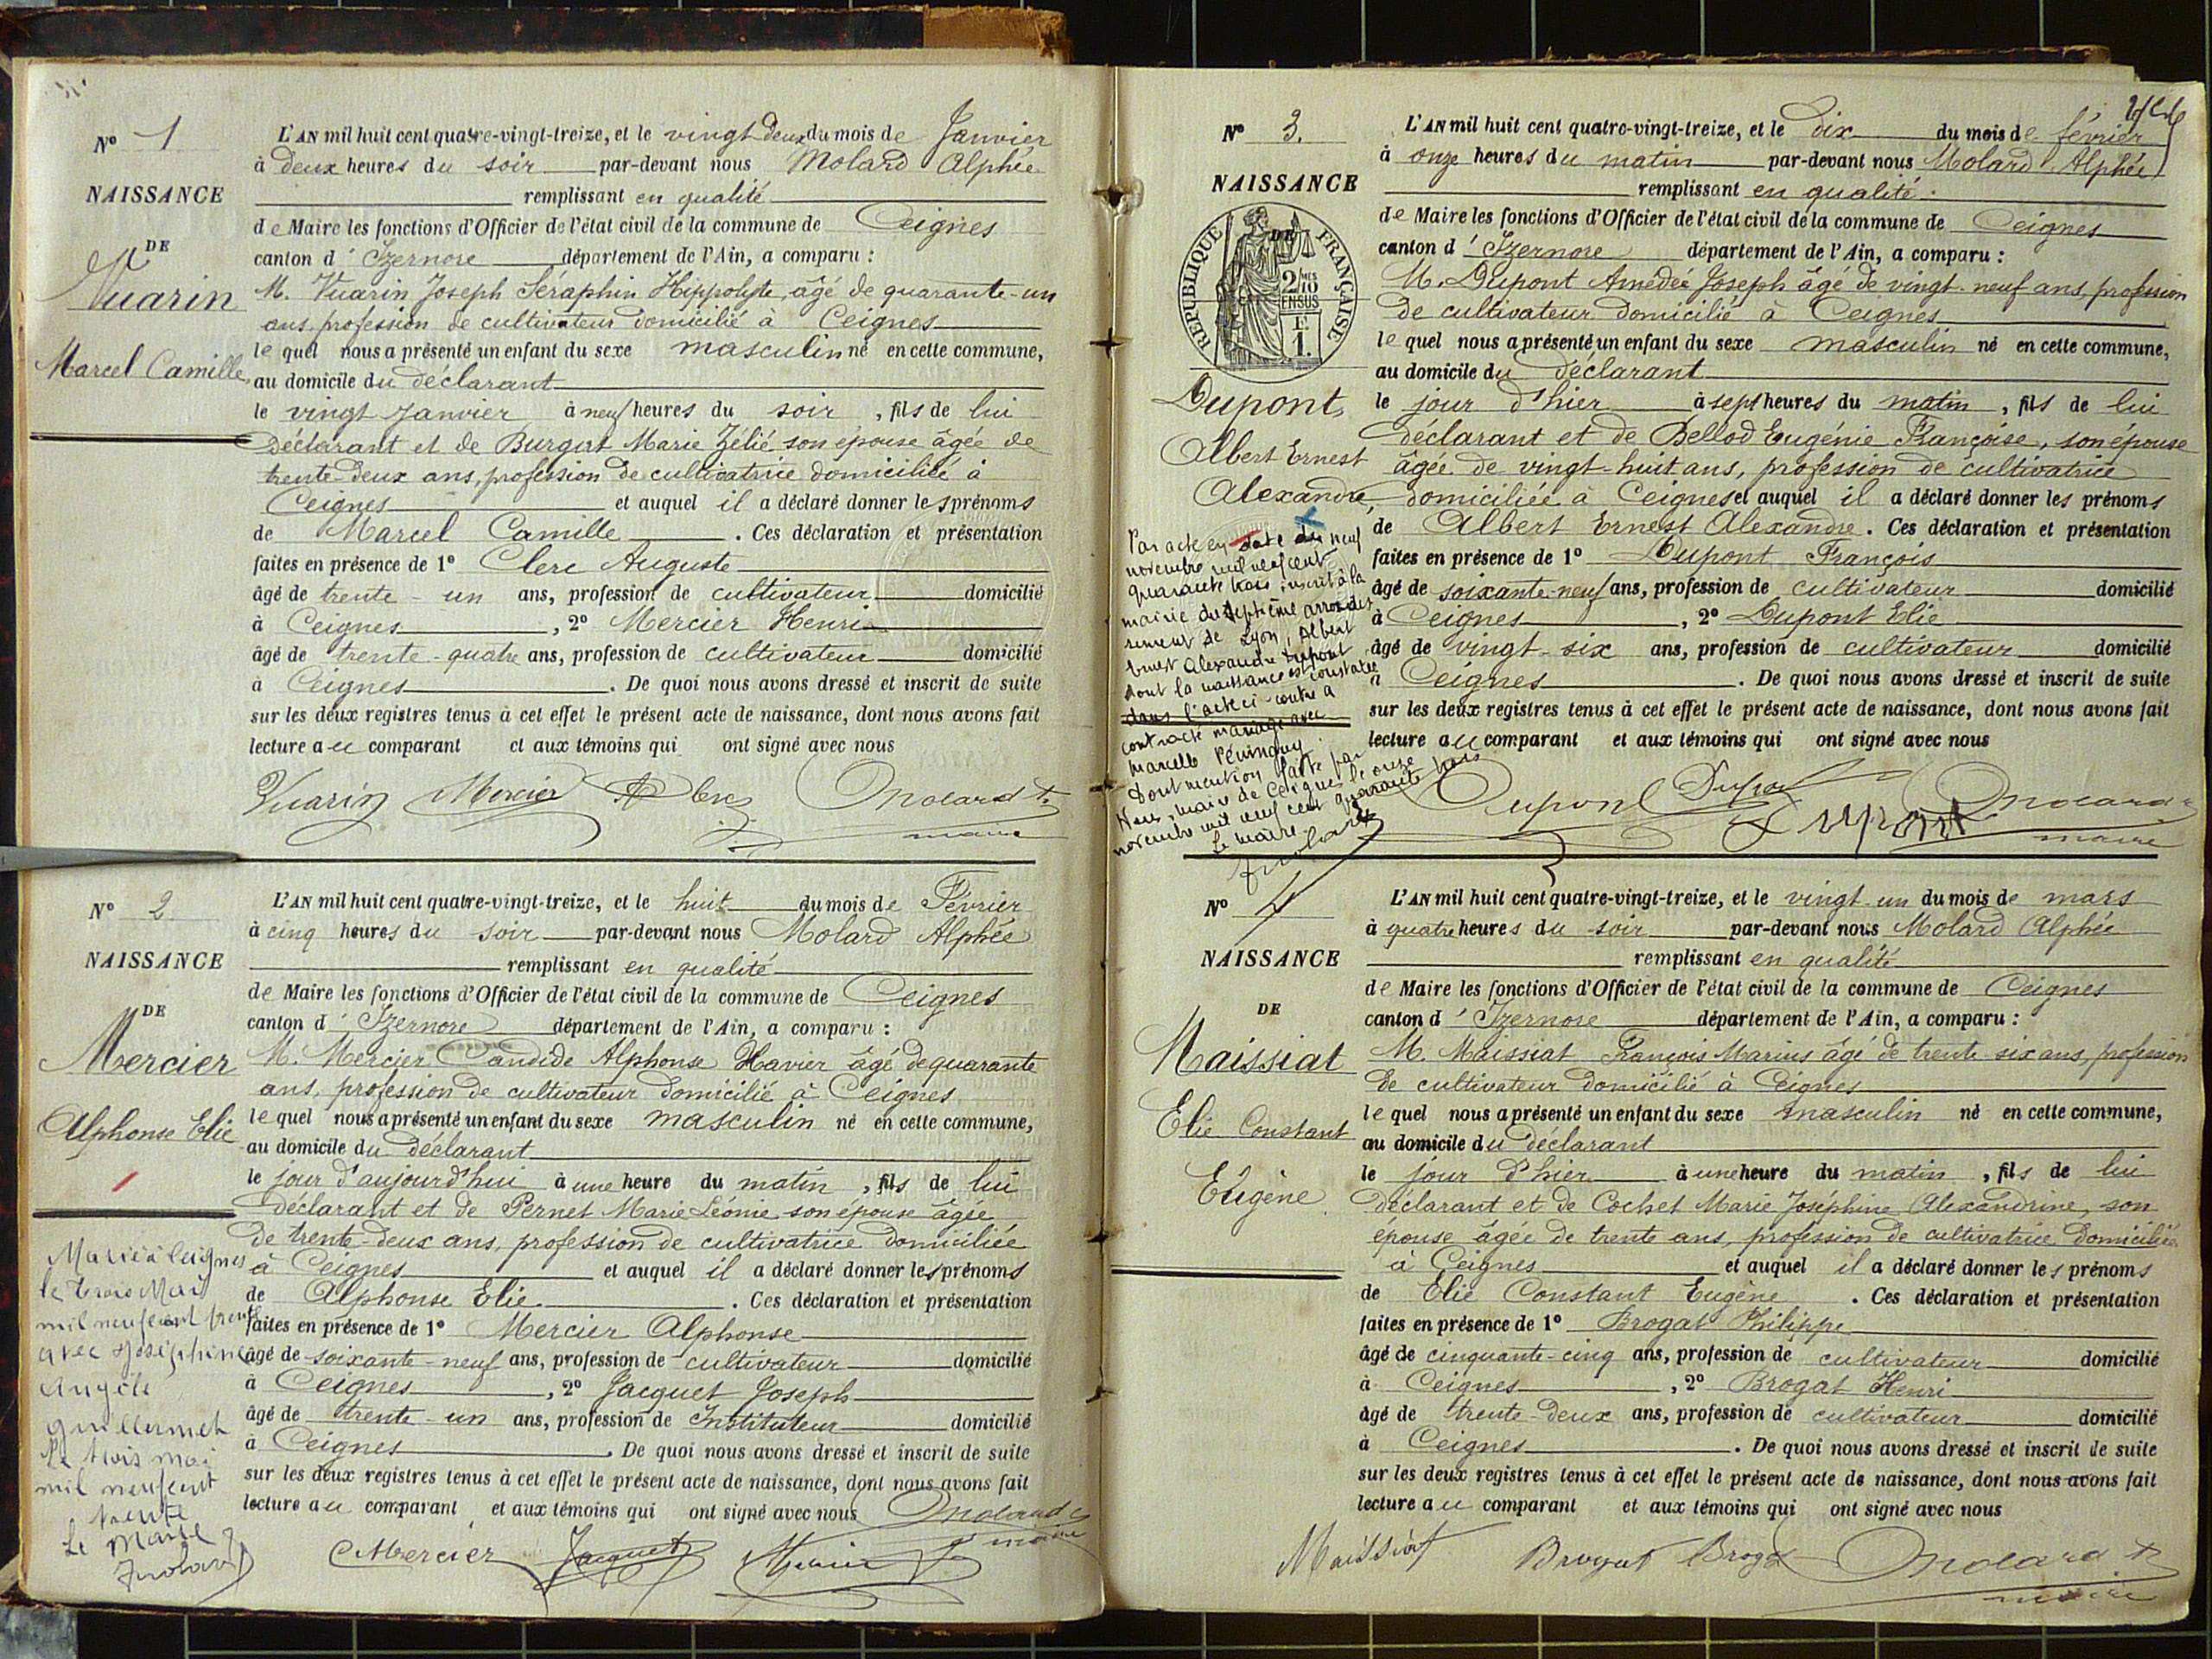 N° 1
NAISSANCE
DE
Vuarin
Marcel Camille
L'AN mil huit cent quatre-vingt-treize, et le vingt deux du mois de Janvier
à deux heures du soir par-devant nous Molard Alphée
remplissant en qualité
de Maire les fonctions d'Officier de l'état civil de la commune de Ceignes
canton d'Izernore département de l'Ain, a comparu :
M. Vuarin Joseph Séraphin Hippolyte, âgé de quarante-un
ans, profession de cultivateur domicilié à Ceignes
lequel nous a présenté un enfant du sexe masculin né en cette commune,
au domicile du déclarant
le vingt Janvier à neuf heures du soir, fils de lui
déclarant et de Burgat Marie Zélie son épouse âgée de
trente-deux ans, profession de cultivatrice domiciliée à
Ceignes et auquel il a déclaré donner les prénoms
de Marcel Camille. Ces déclaration et présentation
faites en présence de 1° Clerc Auguste
âgé de trente-un ans, profession de cultivateur domicilié
à Ceignes, 2° Mercier Henri
âgé de trente-quatre ans, profession de cultivateur domicilié
à Ceignes. De quoi nous avons dressé et inscrit de suite
sur les deux registres tenus à cet effet le présent acte de naissance, dont nous avons fait
lecture au comparant et aux témoins qui ont signé avec nous
Vuarin Mercier A Clerc Molard A.
maire
N° 2
NAISSANCE
DE
Mercier
Alphonse Elie
Marié à Ceignes
le trois Mai
mil neuf cent trente
avec Joséphine
Angèle
Guillermet
Le trois mai
mil neuf cent
trente
Le Maire
Molard
L'AN mil huit cent quatre-vingt-treize, et le huit du mois de Février
à cinq heures du soir par-devant nous Molard Alphée
remplissant en qualité
de Maire les fonctions d'Officier de l'état civil de la commune de Ceignes
canton d'Izernore département de l'Ain, a comparu :
M. Mercier Candide Alphonse Xavier âgé de quarante
ans, profession de cultivateur domicilié à Ceignes
lequel nous a présenté un enfant du sexe masculin né en cette commune,
au domicile du déclarant
le jour d'aujourd'hui à une heure du matin, fils de lui
déclarant et de Pernet Marie Léonie son épouse âgée
de trente-deux ans, profession de cultivatrice domiciliée
à Ceignes et auquel il a déclaré donner les prénoms
de Alphonse Elie. Ces déclaration et présentation
faites en présence de 1° Mercier Alphonse
âgé de soixante-neuf ans, profession de cultivateur domicilié
à Ceignes, 2° Jacquet Joseph
âgé de trente-un ans, profession de Instituteur domicilié
à Ceignes. De quoi nous avons dressé et inscrit de suite
sur les deux registres tenus à cet effet le présent acte de naissance, dont nous avons fait
lecture au comparant et aux témoins qui ont signé avec nous Molard A
maire
Mercier Jacquet Mercier
N° 3.
NAISSANCE
DE
RÉPUBLIQUE FRANÇAISE
2/10
EN SUS
Dupont,
Albert Ernest
Alexandre,
Par acte en date du neuf
novembre mil neuf cent
quarante trois, inscrit à la
mairie du septième arrondis
sement de Lyon, Albert
Ernest Alexandre Dupont
dont la naissance est constatée
dans l'acte ci-contre a
contracté mariage avec
Marcelle
Dont mention faite par
Nous, maire de Ceignes le onze
novembre mil neuf cent quarante trois
Le maire
Molard
L'AN mil huit cent quatre-vingt-treize, et le dix du mois de février
à onze heures du matin par-devant nous Molard Alphée
remplissant en qualité
de Maire les fonctions d'Officier de l'état civil de la commune de Ceignes
canton d'Izernore département de l'Ain, a comparu :
M. Dupont Amédée Joseph âgé de vingt-neuf ans, profession
de cultivateur domicilié à Ceignes
lequel nous a présenté un enfant du sexe masculin né en cette commune,
au domicile du déclarant
le jour d'hier à sept heures du matin, fils de lui
déclarant et de Bellod Eugénie Françoise, son épouse
âgée de vingt-huit ans, profession de cultivatrice
domiciliée à Ceignes et auquel il a déclaré donner les prénoms
de Albert Ernest Alexandre. Ces déclaration et présentation
faites en présence de 1° Dupont François
âgé de soixante-neuf ans, profession de cultivateur domicilié
à Ceignes, 2° Dupont Elie
âgé de vingt-six ans, profession de cultivateur domicilié
à Ceignes. De quoi nous avons dressé et inscrit de suite
sur les deux registres tenus à cet effet le présent acte de naissance, dont nous avons fait
lecture au comparant et aux témoins qui ont signé avec nous
Dupont Dupont Dupont Molard A
maire
N° 4
NAISSANCE
DE
Maissiat
Elie Constant
Eugène
L'AN mil huit cent quatre-vingt-treize, et le vingt-un du mois de mars
à quatre heures du soir par-devant nous Molard Alphée
remplissant en qualité
de Maire les fonctions d'Officier de l'état civil de la commune de Ceignes
canton d'Izernore département de l'Ain, a comparu :
M. Maissiat François Marius âgé de trente-six ans, profession
de cultivateur domicilié à Ceignes
lequel nous a présenté un enfant du sexe masculin né en cette commune,
au domicile du déclarant
le jour d'hier à une heure du matin, fils de lui
déclarant et de Cochet Marie Joséphine Alexandrine, son
épouse âgée de trente ans, profession de cultivatrice domiciliée
à Ceignes et auquel il a déclaré donner les prénoms
de Elie Constant Eugène. Ces déclaration et présentation
faites en présence de 1° Brogat Philippe
âgé de cinquante-cinq ans, profession de cultivateur domicilié
à Ceignes, 2° Brogat Henri
âgé de trente-deux ans, profession de cultivateur domicilié
à Ceignes. De quoi nous avons dressé et inscrit de suite
sur les deux registres tenus à cet effet le présent acte de naissance, dont nous avons fait
lecture au comparant et aux témoins qui ont signé avec nous
Maissiat Brogat Brogat Molard A
maire